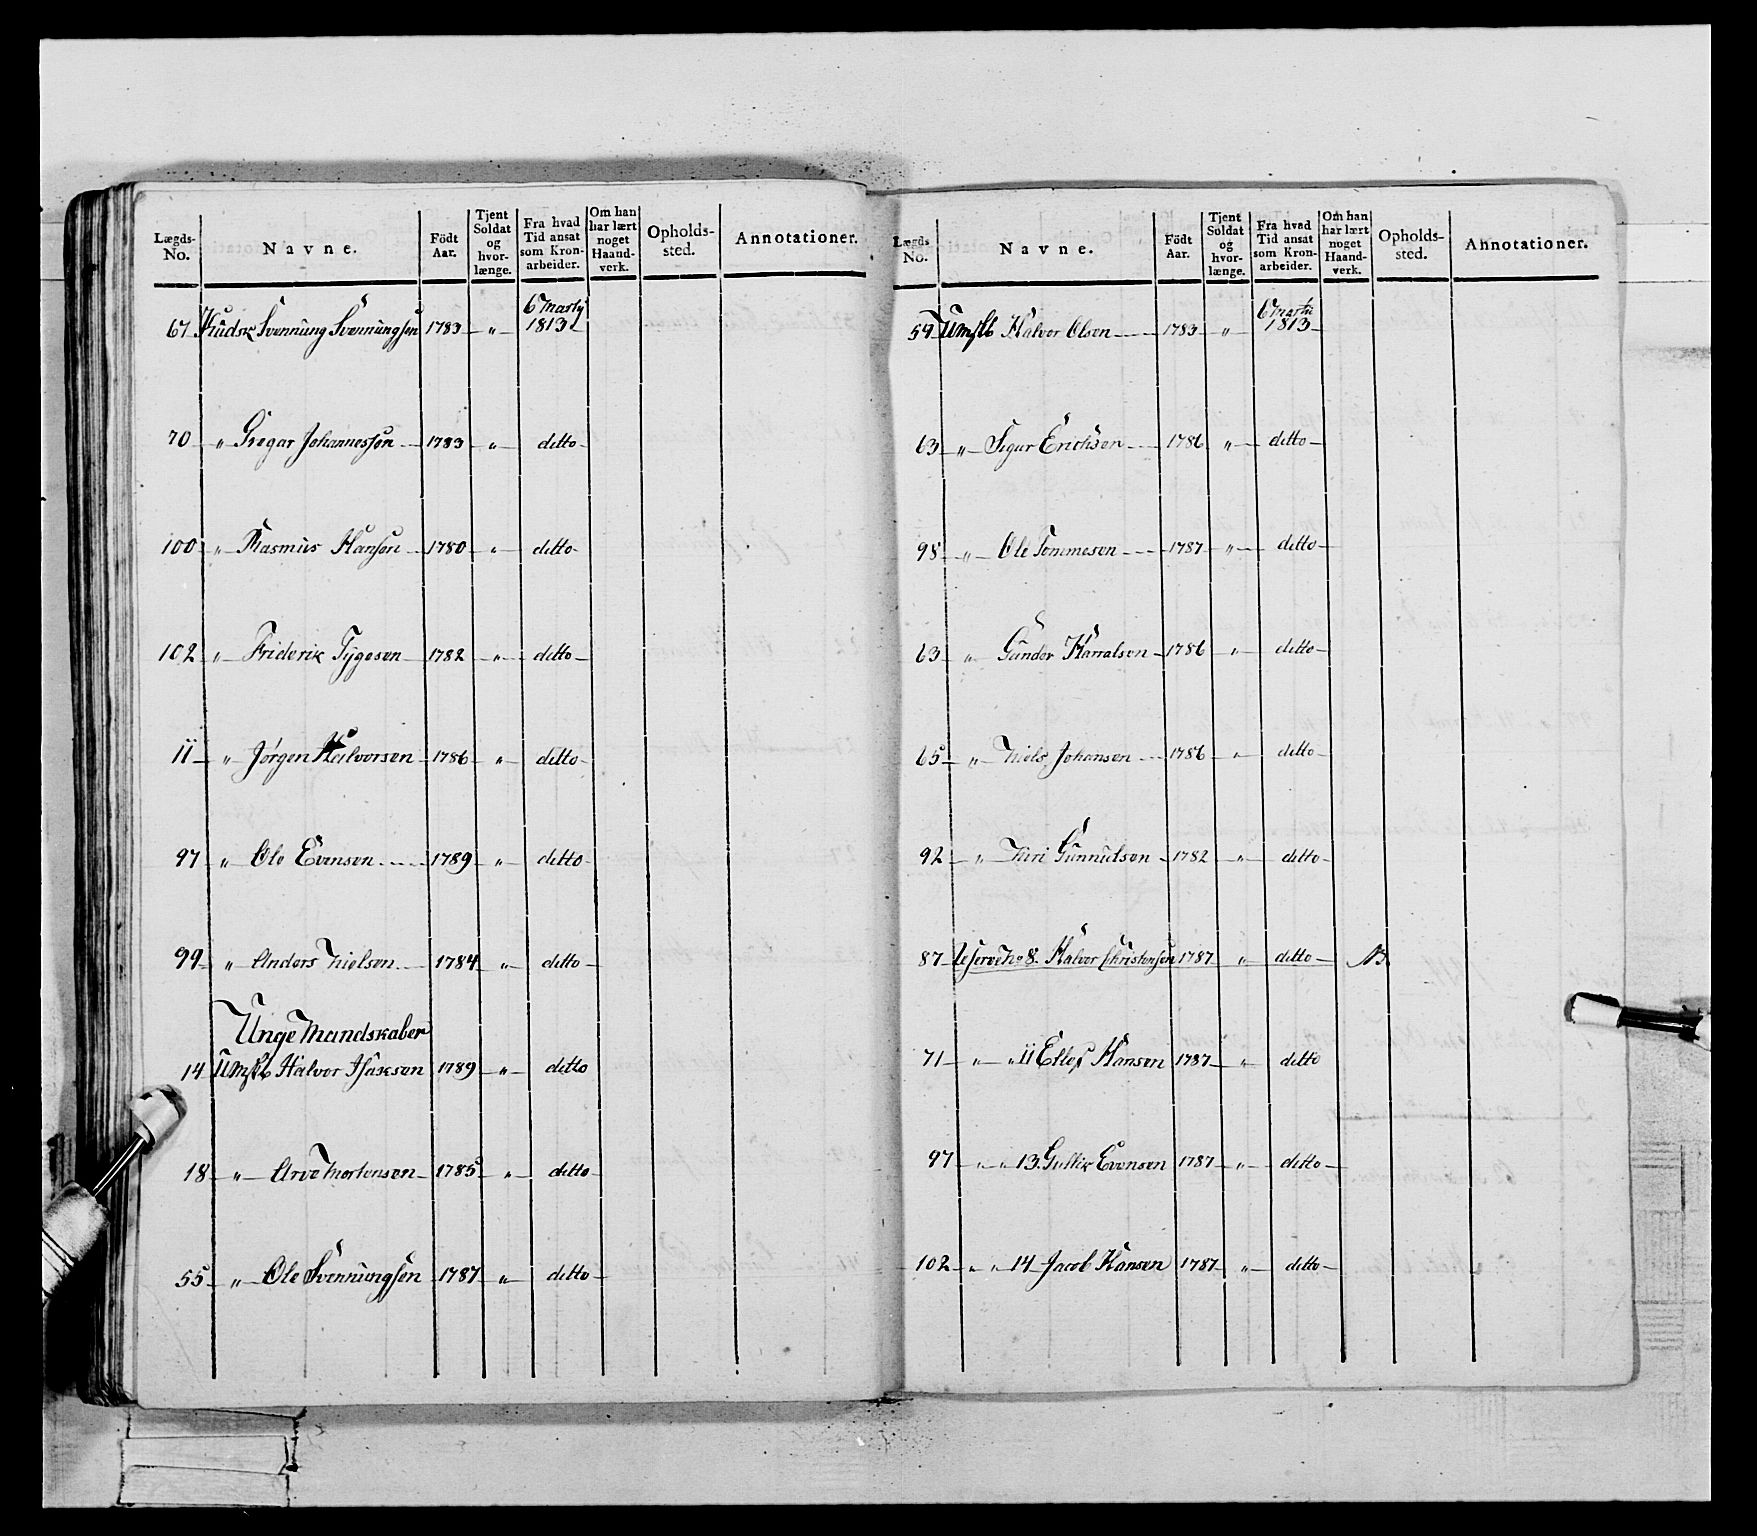 Lægds- No. Navne. Födt Aar. Tjent Soldat og hvor- længe. Fra hvad Tid ansat som Kron- arbeider. Om han har lært noget Haand- verk. Opholds- sted. Annotationer.
67 Kudsk Svennung Svennungsen 1783 " 6 Marty 1813
70 " Gregar Johannessen 1783 " ditto
100 " Rasmus Hansen 1780 " ditto
102 " Friderik Tygesen 1782 " ditto
11 " Jørgen Halvorsen 1786 " ditto
97 " Ole Evensen 1789 " ditto
99 " Anders Nielsen 1784 " ditto
Unge Mandskaber
14 Halvor Isaksen 1789 " ditto
18 " Arve Mortensen 1785 " ditto
55 " Ole Svennungsen 1787 " ditto
Lægds No. Navne. Födt Aar. Tjent Soldat og hvor- længe. Fra hvad Tid ansat som Kron- arbeider. Om han har lært noget Haand- verk. Opholds- sted. Annotationer.
59 Halvor Olsen 1783 " 6 Martii 1813
63 " Sigur Erichsen 1786 " ditto
98 " Ole Tommesen 1787 " ditto
63 " Gunder Haralsen 1786 " ditto
65 " Niels Johansen 1786 " ditto
92 " Gunnulsen 1782 " ditto
87 No 8. Halvor Christensen 1787 " ditto
71 " " 11 Ellef Hansen 1787 " ditto
97 " " 13. Gullik Evensen 1787 " ditto
102 " " 14 Jacob Hansen 1787 " ditto